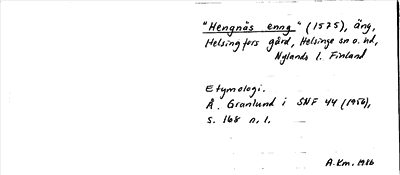 "Hengnäs enng" (1575), äng,
Helsingfors gård, Helsinge sn o. hd,
Nylands l. Finland
Etymologi.
Å. Granlund i SNF 44 (1956),
s. 168 n. 1.
A.Km. 1986